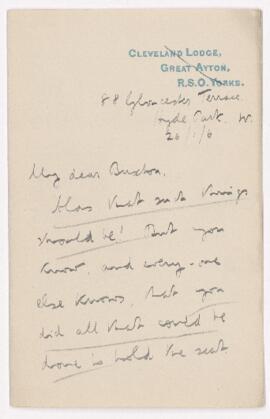 CLEVELAND LODGE,
GREAT AYTON,
R.S.O. YORKS.
88 Gloucester Terrace
Hyde Park. W.
26/1/6
My dear Buxton,
Alas that such things
should be! But you
know, and every-one
else knows, that you
did all that could be
done to hold the seat.